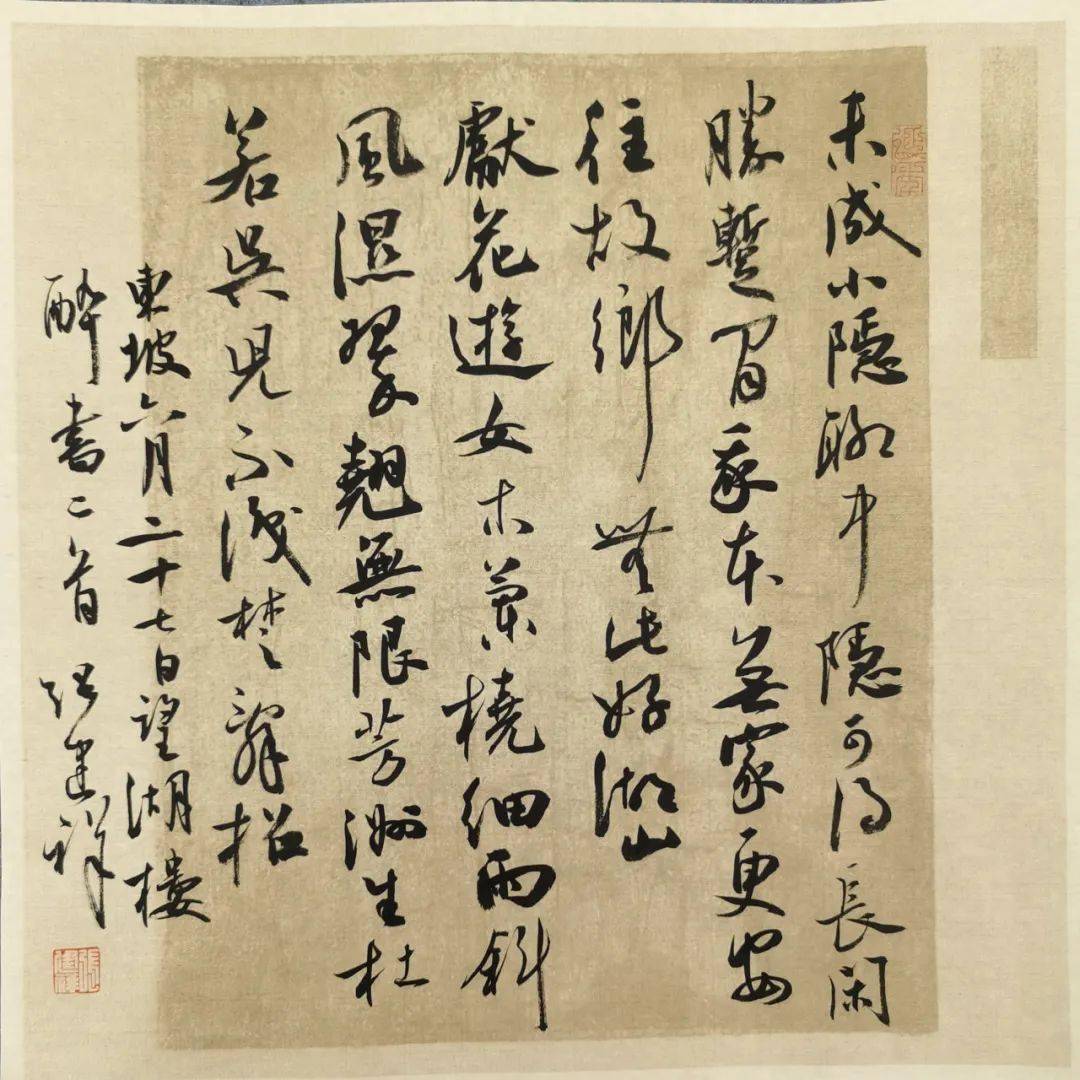 未成小隱聊中隱可得長閑
勝暫閒我本無家更安
往故鄉無此好湖山
獻花遊女木蘭橈細雨斜
風濕翠翹無限芳洲生杜
若吳兒不識楚辭招
東坡六月二十七日望湖樓
醉書二首 張建祥